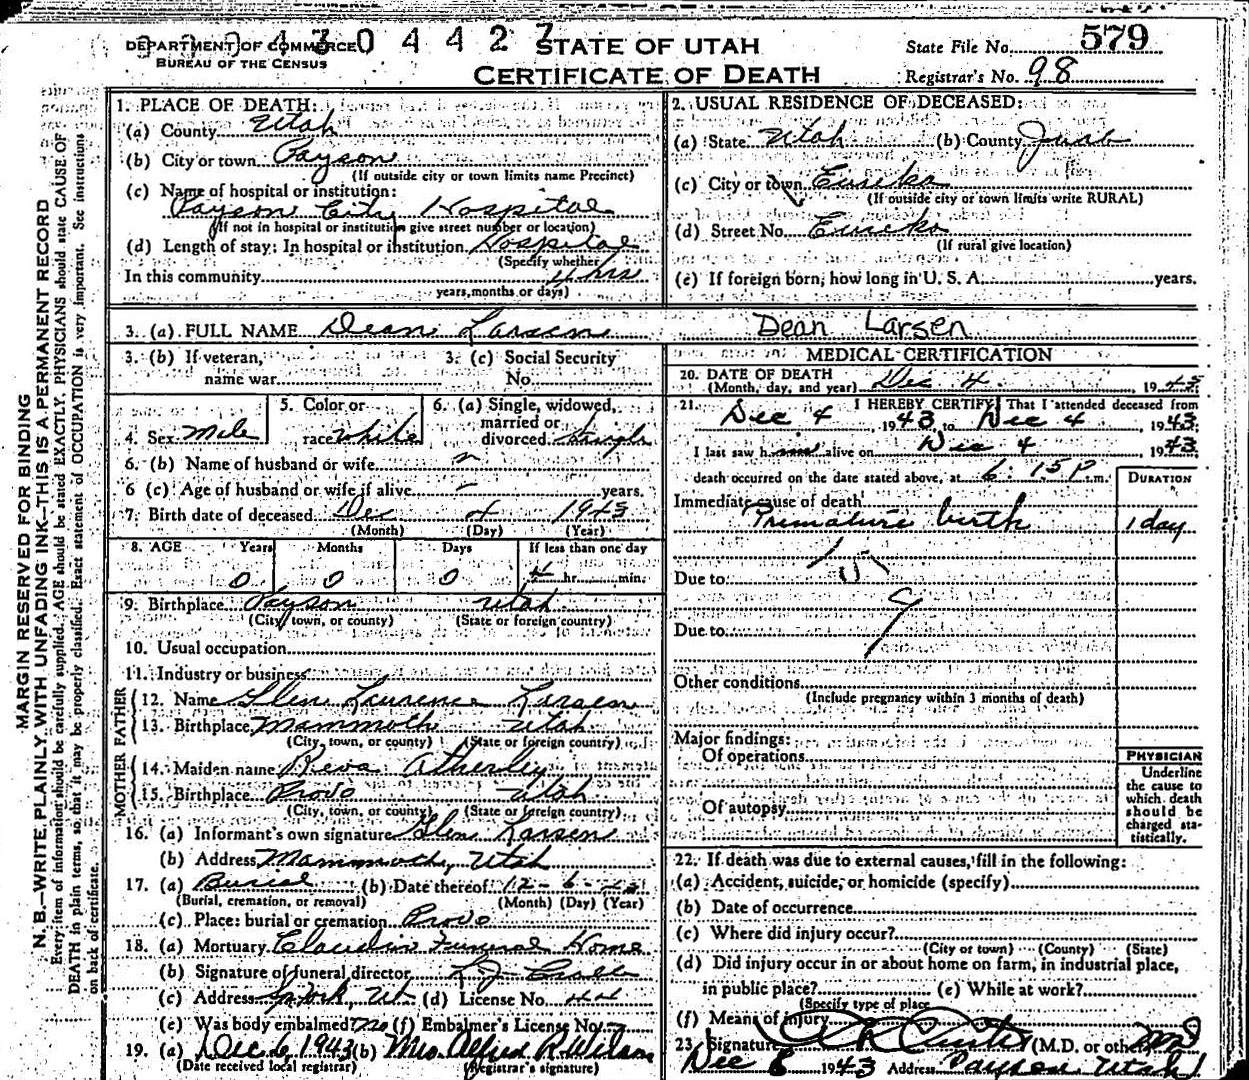 0 4 3 0 4 4 2 7
DEPARTMENT OF COMMERCE
BUREAU OF THE CENSUS
STATE OF UTAH
CERTIFICATE OF DEATH
State File No. 579
Registrar's No. 98
MARGIN RESERVED FOR BINDING
N. B.—WRITE PLAINLY, WITH UNFADING INK—THIS IS A PERMANENT RECORD
Every item of information should be carefully supplied. AGE should be stated EXACTLY. PHYSICIANS should state CAUSE OF
DEATH in plain terms, so that it may be properly classified. Exact statement of OCCUPATION is very important. See instructions
on back of certificate.
1. PLACE OF DEATH:
(a) County Utah
(b) City or town Payson
(If outside city or town limits name Precinct)
(c) Name of hospital or institution:
Payson City Hospital
(If not in hospital or institution give street number or location)
(d) Length of stay: In hospital or institution Hospital
(Specify whether
In this community 4 hrs
years, months or days)
2. USUAL RESIDENCE OF DECEASED:
(a) State Utah (b) County Juab
(c) City or town Eureka
(If outside city or town limits write RURAL)
(d) Street No. Eureka
(If rural give location)
(e) If foreign born, how long in U. S. A. years.
3. (a) FULL NAME Dean Larsen Dean Larsen
3. (b) If veteran,
name war
3. (c) Social Security
No.
4. Sex Male
5. Color or
race white
6. (a) Single, widowed,
married or
divorced Single
6. (b) Name of husband or wife
6 (c) Age of husband or wife if alive — years.
7. Birth date of deceased Dec 4 1943
(Month) (Day) (Year)
8. AGE Years Months Days If less than one day
0 0 0 4 hr. min.
9. Birthplace Payson Utah
(City, town, or county) (State or foreign country)
10. Usual occupation
11. Industry or business
FATHER
12. Name Glen Laurence Larsen
13. Birthplace Mammoth Utah
(City, town, or county) (State or foreign country)
MOTHER
14. Maiden name Reva Atherley
15. Birthplace Provo Utah
(City, town, or county) (State or foreign country)
16. (a) Informant's own signature Glen Larsen
(b) Address Mammoth, Utah
17. (a) Burial (b) Date thereof 12-6-43
(Burial, cremation, or removal) (Month) (Day) (Year)
(c) Place: burial or cremation Provo
18. (a) Mortuary Claudin Funeral Home
(b) Signature of funeral director
(c) Address Ut. (d) License No.
(e) Was body embalmed? no (f) Embalmer's License No.
19. (a) Dec 6, 1943 (b) Mrs. Alfred R. Wilson
(Date received local registrar) (Registrar's signature)
MEDICAL CERTIFICATION
20. DATE OF DEATH
(Month, day, and year) Dec 4, 1943
21. I HEREBY CERTIFY, That I attended deceased from
Dec 4 1943, to Dec 4, 1943.
I last saw h alive on Dec 4, 1943.
death occurred on the date stated above, at 6:15 P. m.
DURATION
Immediate cause of death
Premature birth 1 day
Due to
Due to
Other conditions
(Include pregnancy within 3 months of death)
Major findings:
Of operations
Of autopsy
PHYSICIAN
Underline
the cause to
which death
should be
charged sta-
tistically.
22. If death was due to external causes, fill in the following:
(a) Accident, suicide, or homicide (specify)
(b) Date of occurrence
(c) Where did injury occur?
(City or town) (County) (State)
(d) Did injury occur in or about home on farm, in industrial place,
in public place? (e) While at work?
(Specify type of place
(f) Means of injury
23. Signature Curtis (M.D. or other) MD
Dec 6 1943 Address Payson Utah